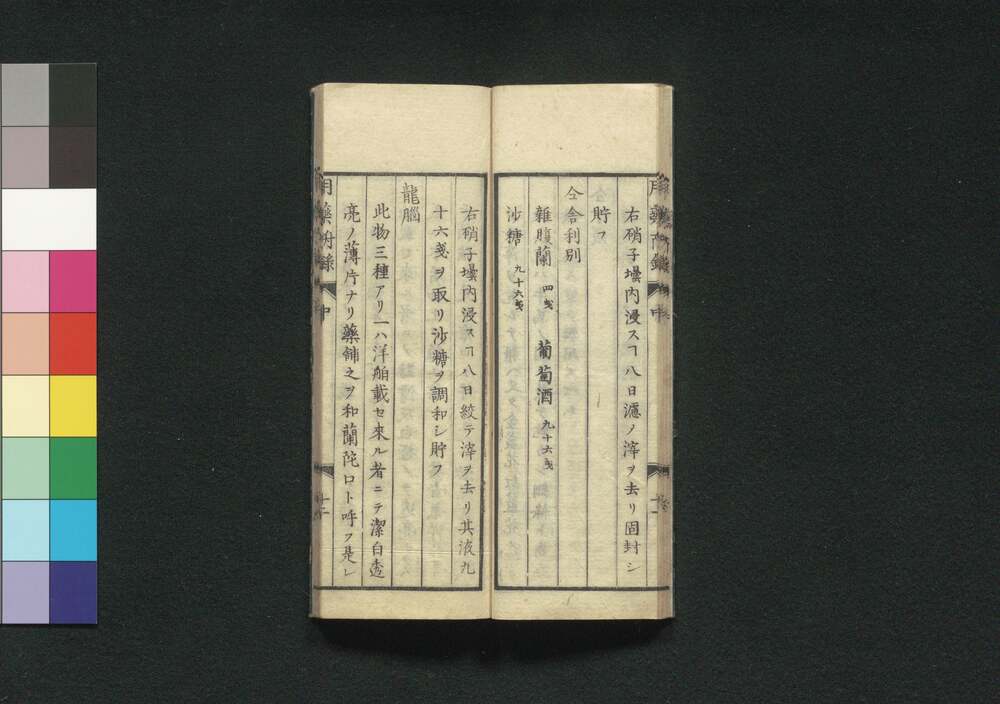 右硝子壜内浸スヿ八日濾ノ滓ヲ去リ固封シ
貯フ
仝舎利別
雜腹蘭 四戔 葡萄酒 九十六戔
沙糖 九十六戔
右硝子壜内浸スヿ八日絞テ滓ヲ去リ其液九
十六戔ヲ取リ沙糖ヲ調和シ貯フ
龍腦
此物三種アリ一ハ洋舶載セ來ル者ニテ潔白透
亮ノ薄片ナリ藥鋪之ヲ和蘭陀口ト呼フ是レ
用藥附錄 中